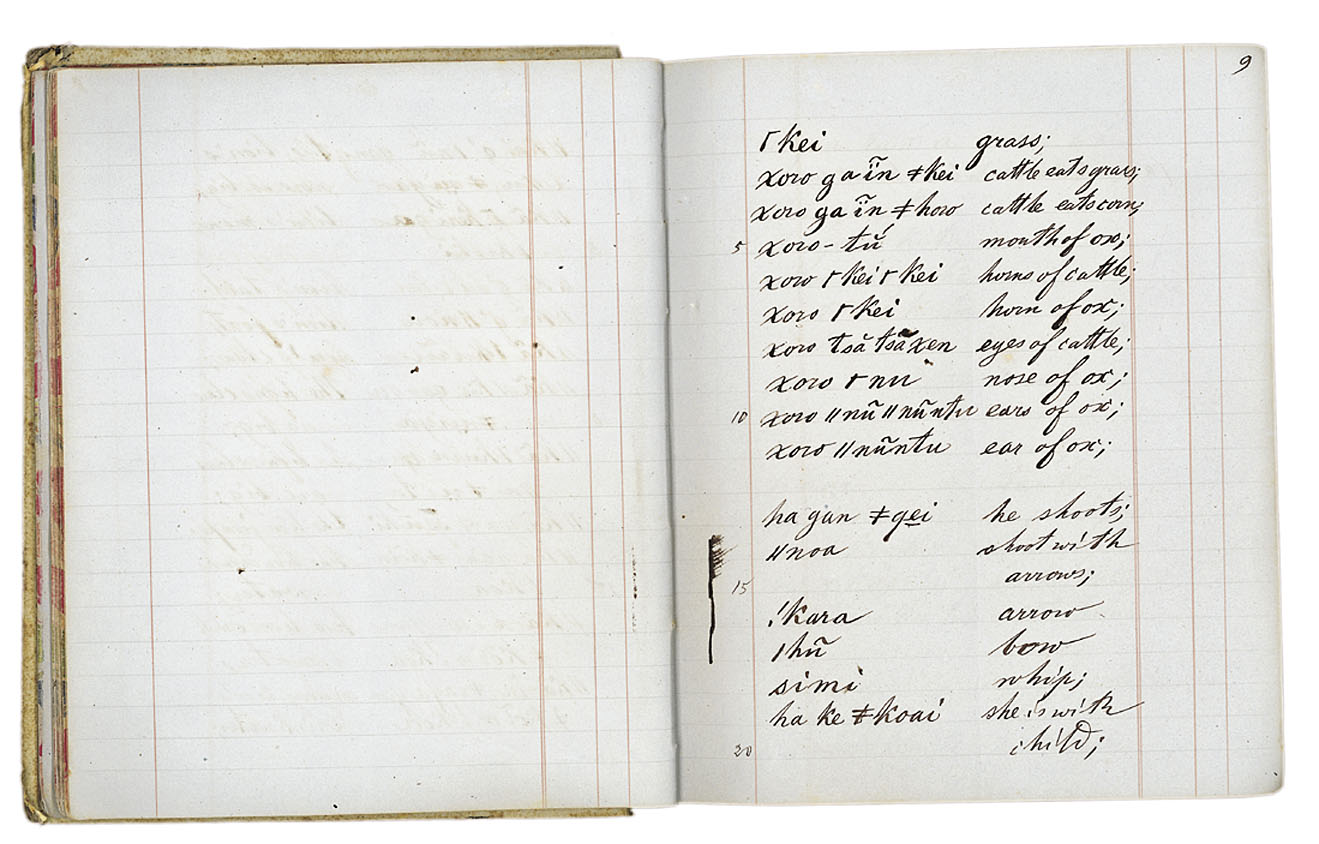 9
ꞅkei grass;
xoro ga ĩn ǂkei cattle eats grass;
xoro ga ĩn ǂhoro cattle eats corn;
5 xoro-tú mouth of ox;
xoro ꞅkei ꞅkei horns of cattle;
xoro ꞅkei horn of ox;
xoro tsă tsãxen eyes of cattle;
xoro ꞅnu nose of ox;
10 xoro ǁnũ ǁnũntu ears of ox;
xoro ǁnũntu ear of ox;
ha gan ǂqei he shoots;
ǁnoa shoot with
15 arrows;
!kara arrow
ǀhũ bow
simi whip;
ha ke ǂkoai she is with
20 child;